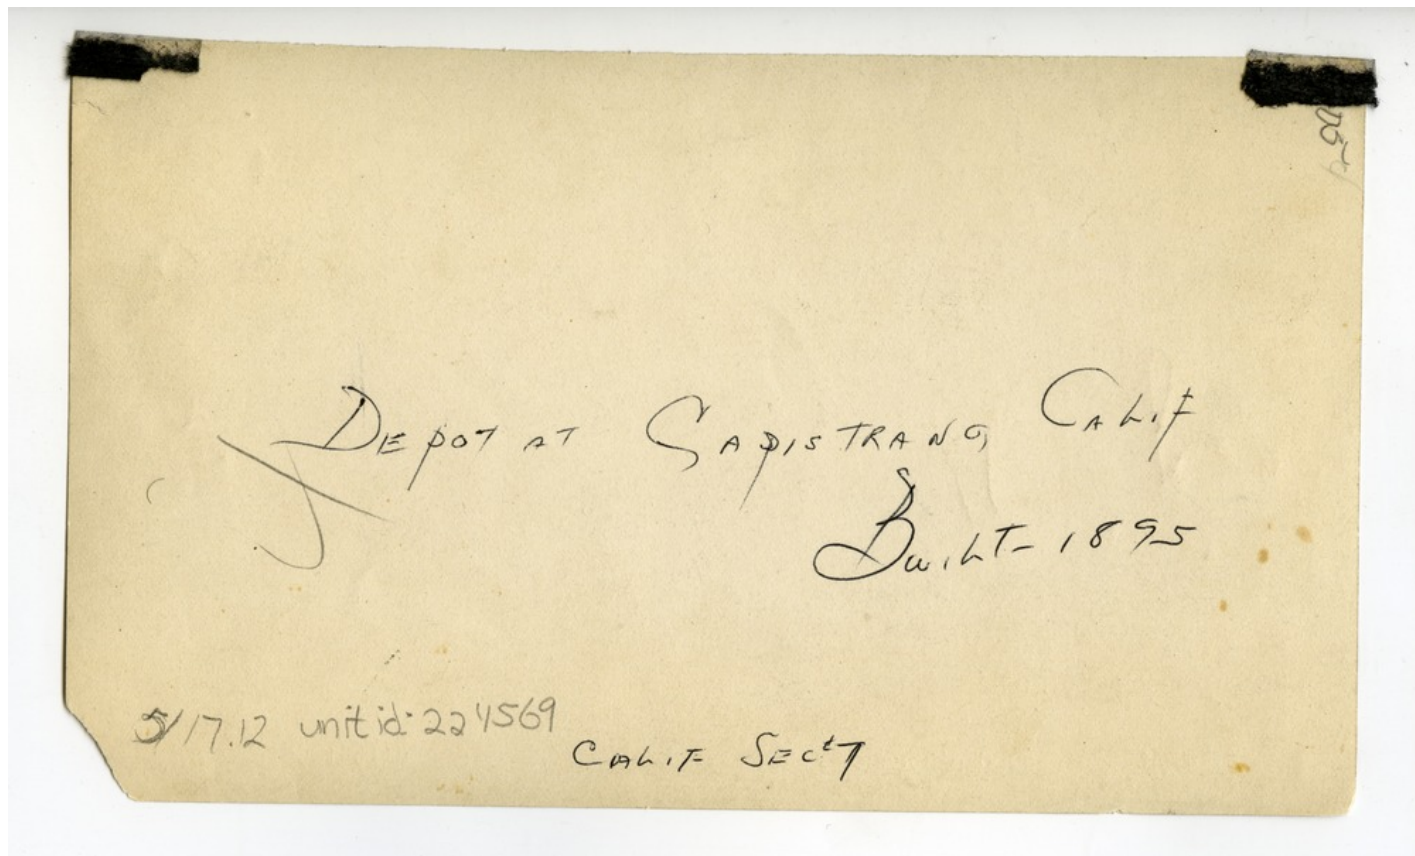 DEPOT AT CAPISTRANO CALIF
BUILT - 1895
5/17.12 unit id: 224569
CALIF SEC'T